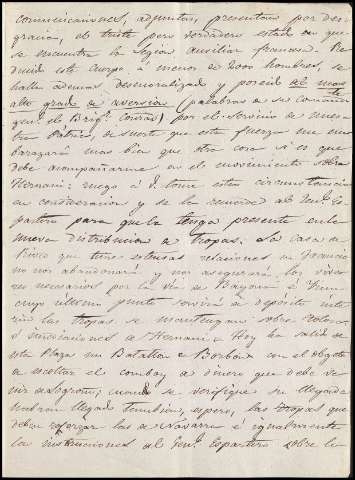 comunicaciones, adjuntas, presentan por des-
gracia, el triste pero verdadero estado en que
se encuentra la Legion auxiliar francesa. Re-
ducido este cuerpo á menos de 2000 hombres, se
halla ademas desmoralizado y poseido al mas
alto grado de aversion (palabras de su Coman.te
gen.l el Brig.r Conrad) por el servicio de nues-
tra Patria, de suerte que esta fuerza me em-
barazará mas bien que otra cosa si es que
debe acompañarme en el movimiento sobre
Hernani: ruego á V. tome estas circunstancias
en consideracion y se las remita al Gen.l Es-
partero para que las tenga presente en la
nueva distribucion de tropas. La casa de
que tiene estensas relaciones en Francia
no nos abandonará y nos asegurará los vive-
res necesarios por la via de Bayona é Irun
cuyo ultimo punto servirá de deposito inte-
rin las tropas se mantengan sobre
ó inmediaciones de Hernani. Hoy ha salido de
esta Plaza un Batallon de Borbon con el objeto
de escoltar el comboy de dinero que debe ve-
nir de Logroño; cuando se verifique su llegada
habran llegado tambien, espero, las tropas que
deben reforzar las de Navarra é igualmente
las instrucciones del Gen.l Espartero sobre la